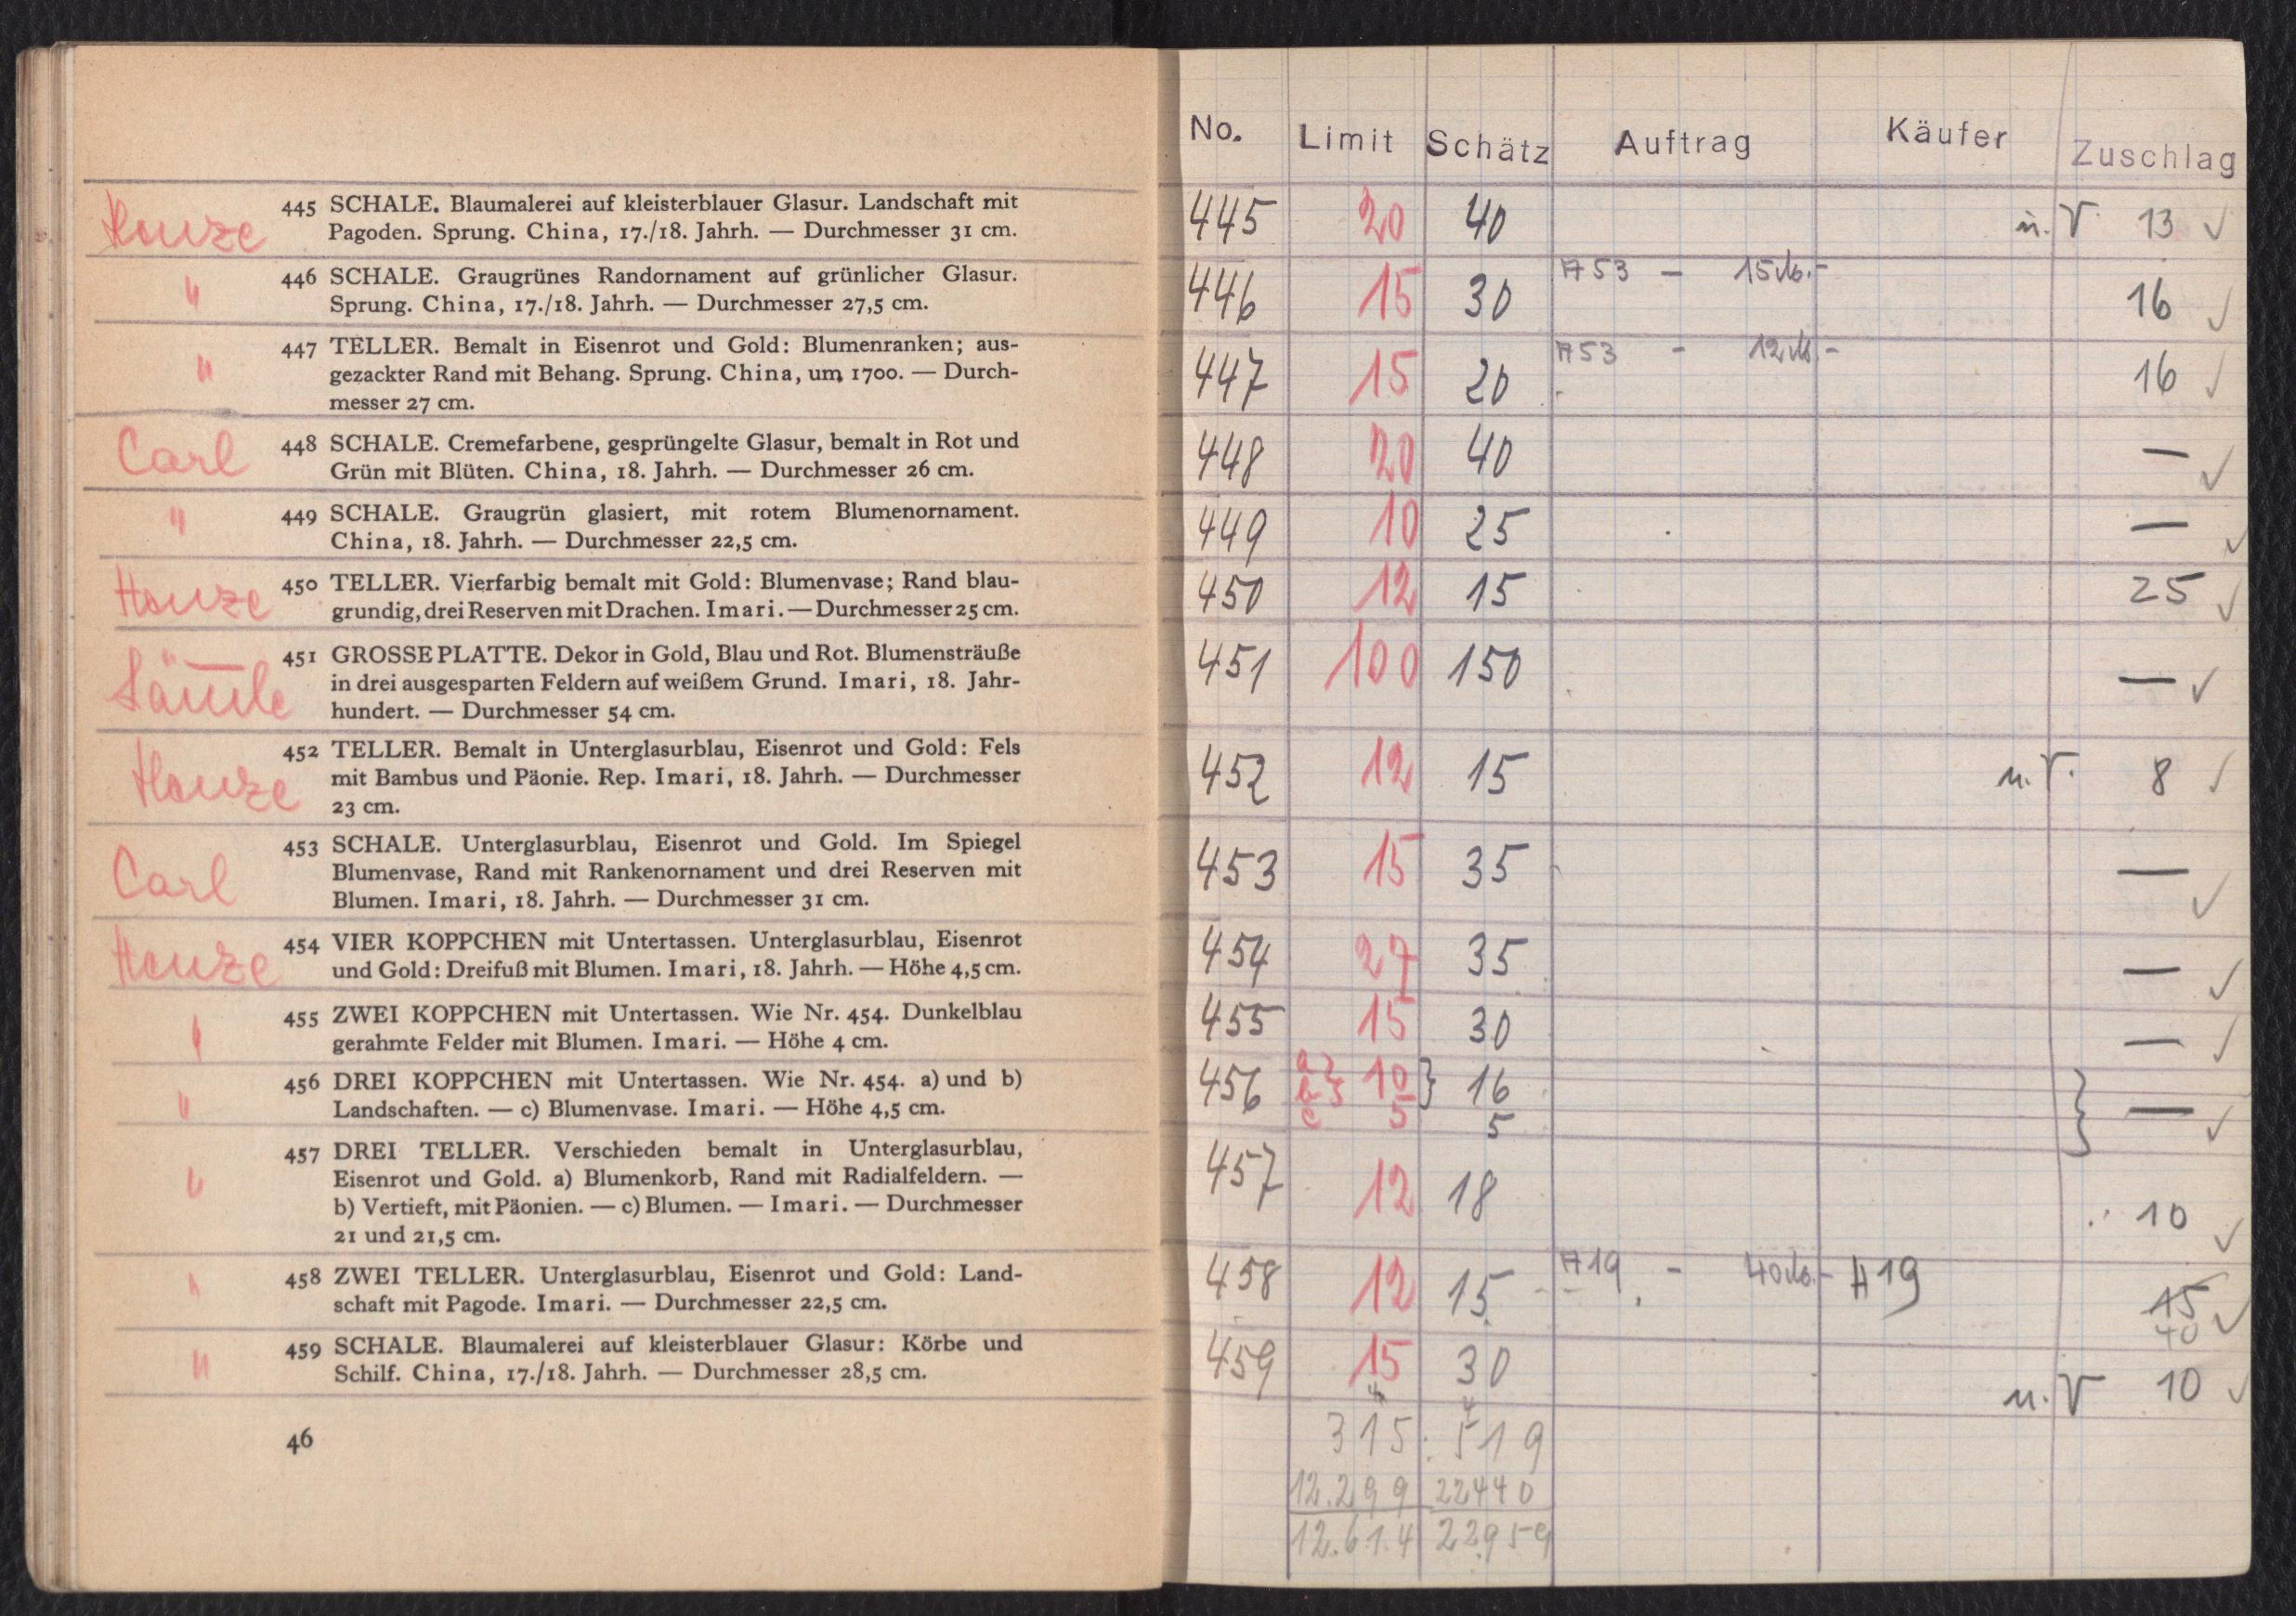 Hauze 445 SCHALE. Blaumalerei auf kleisterblauer Glasur. Landschaft mit
Pagoden. Sprung. China, 17./18. Jahrh. — Durchmesser 31 cm.
" 446 SCHALE. Graugrünes Randornament auf grünlicher Glasur.
Sprung. China, 17./18. Jahrh. — Durchmesser 27,5 cm.
" 447 TELLER. Bemalt in Eisenrot und Gold: Blumenranken; aus-
gezackter Rand mit Behang. Sprung. China, um 1700. — Durch-
messer 27 cm.
Carl 448 SCHALE. Cremefarbene, gesprüngelte Glasur, bemalt in Rot und
Grün mit Blüten. China, 18. Jahrh. — Durchmesser 26 cm.
" 449 SCHALE. Graugrün glasiert, mit rotem Blumenornament.
China, 18. Jahrh. — Durchmesser 22,5 cm.
Hauze 450 TELLER. Vierfarbig bemalt mit Gold: Blumenvase; Rand blau-
grundig, drei Reserven mit Drachen. Imari. — Durchmesser 25 cm.
451 GROSSE PLATTE. Dekor in Gold, Blau und Rot. Blumensträuße
in drei ausgesparten Feldern auf weißem Grund. Imari, 18. Jahr-
hundert. — Durchmesser 54 cm.
Hauze 452 TELLER. Bemalt in Unterglasurblau, Eisenrot und Gold: Fels
mit Bambus und Päonie. Rep. Imari, 18. Jahrh. — Durchmesser
23 cm.
Carl 453 SCHALE. Unterglasurblau, Eisenrot und Gold. Im Spiegel
Blumenvase, Rand mit Rankenornament und drei Reserven mit
Blumen. Imari, 18. Jahrh. — Durchmesser 31 cm.
Hauze 454 VIER KOPPCHEN mit Untertassen. Unterglasurblau, Eisenrot
und Gold: Dreifuß mit Blumen. Imari, 18. Jahrh. — Höhe 4,5 cm.
" 455 ZWEI KOPPCHEN mit Untertassen. Wie Nr. 454. Dunkelblau
gerahmte Felder mit Blumen. Imari. — Höhe 4 cm.
" 456 DREI KOPPCHEN mit Untertassen. Wie Nr. 454. a) und b)
Landschaften. — c) Blumenvase. Imari. — Höhe 4,5 cm.
" 457 DREI TELLER. Verschieden bemalt in Unterglasurblau,
Eisenrot und Gold. a) Blumenkorb, Rand mit Radialfeldern. —
b) Vertieft, mit Päonien. — c) Blumen. — Imari. — Durchmesser
21 und 21,5 cm.
" 458 ZWEI TELLER. Unterglasurblau, Eisenrot und Gold: Land-
schaft mit Pagode. Imari. — Durchmesser 22,5 cm.
" 459 SCHALE. Blaumalerei auf kleisterblauer Glasur: Körbe und
Schilf. China, 17./18. Jahrh. — Durchmesser 28,5 cm.
46
No. Limit Schätz Auftrag Käufer Zuschlag
445 20 40 u. V. 13 ✓
446 15 30 A 53 – 15 M.– 16 ✓
447 15 20 A 53 – 12 M.– 16 ✓
448 20 40 — ✓
449 10 25 — ✓
450 12 15 25 ✓
451 100 150 — ✓
452 12 15 u. V. 8 ✓
453 15 35 — ✓
454 27 35 — ✓
455 15 30 — ✓
456 a b } 10 } 16 } — ✓
c 5 5
457 12 18 10 ✓
458 12 15 A 19 – 40 M.– A 19 15 ✓
40
459 15 30 u. V 10 ✓
315 519
12.299 22440
12.614 22959